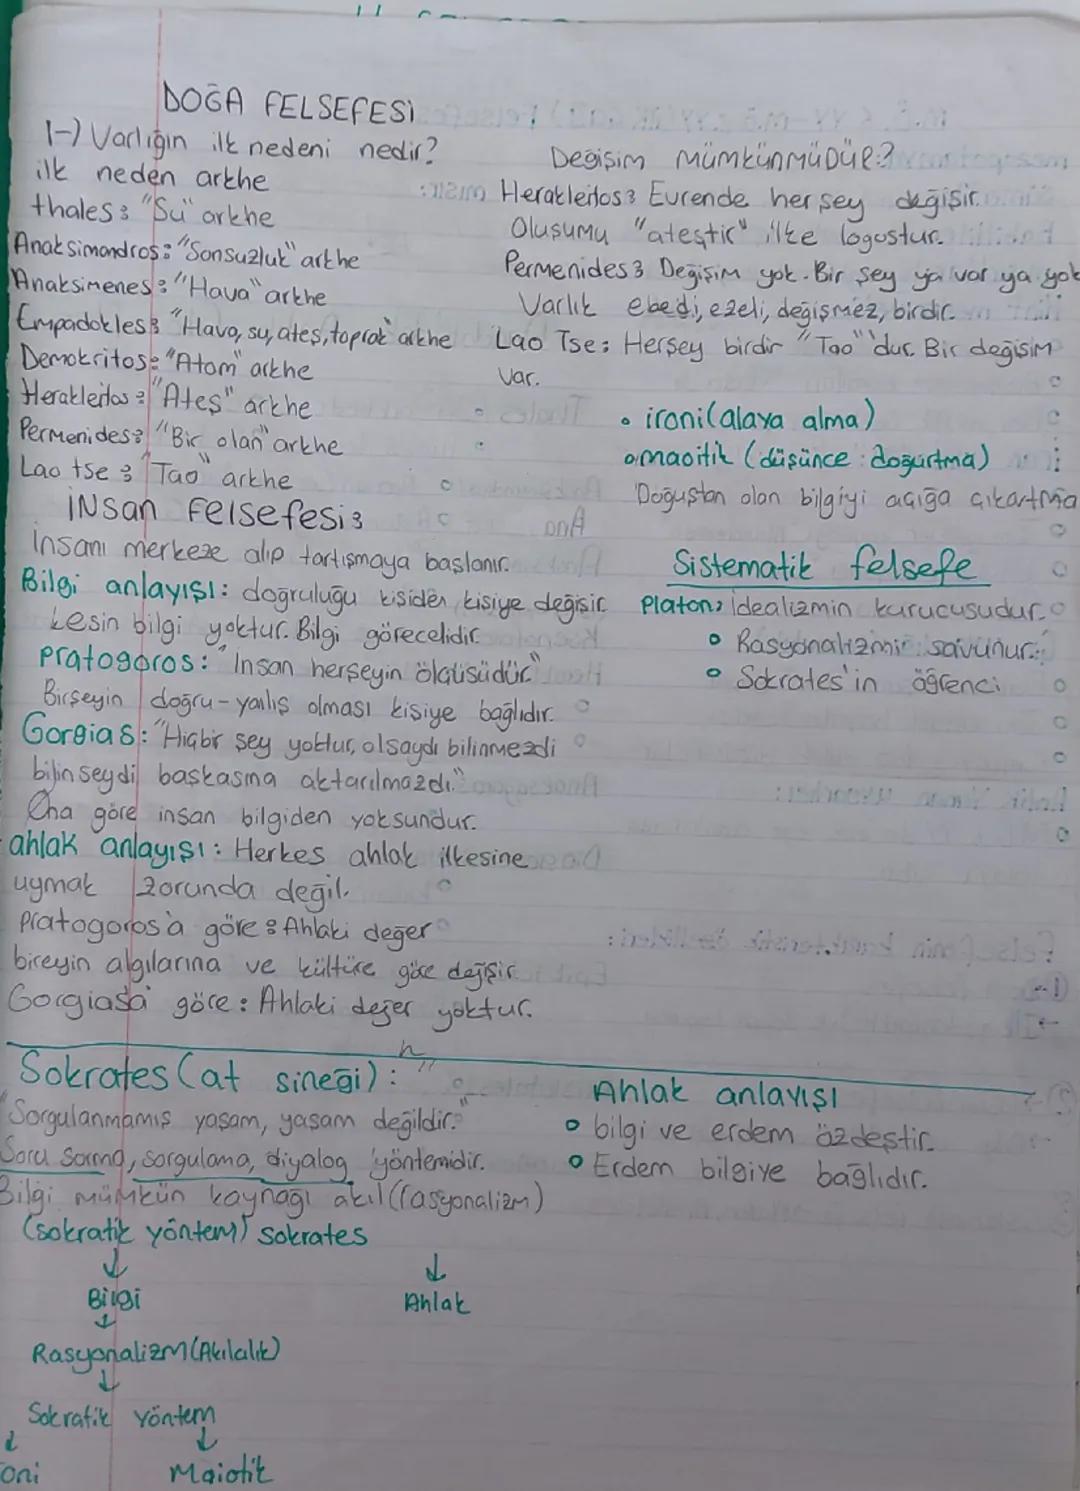 DOĞA FELSEFESİ
1-) Varlığın ilk nedeni nedir?
ilk neden arkhe
thales: "Su" arkhe
Anaksimandros: "Sonsuzluk" arkhe
Anaksimenes: "Hava" arkhe
Empadokles: "Hava, su, ateş, toprak" arkhe
Demokritos: "Atom" arkhe
Herakleitos: "Ateş" arkhe
Permenides: "Bir olan" arkhe
Lao tse: "Tao" arkhe
Değişim MümkünmüDüR?
Herakleitos: Evrende her şey değişir.
Oluşumu "ateştir" ilke logostur.
Permenides: Değişim yok. Bir şey ya var ya yok
Varlık ebedi, ezeli, değişmez, birdir.
Lao Tse: Herşey birdir "Tao" 'dur. Bir değişim
var.
• ironi (alaya alma)
• maoitik (düşünce doğurtma)
Doğuştan olan bilgiyi açığa çıkartma
İNSan Felsefesi:
İnsanı merkeze alıp tartışmaya başlanır.
Bilgi anlayışı: doğruluğu kişiden kişiye değişir.
kesin bilgi yoktur. Bilgi görecelidir.
Pratogoros: "İnsan herşeyin ölçüsüdür"
Birşeyin doğru-yanlış olması kişiye bağlıdır.
Gorgias: "Hiçbir şey yoktur, olsaydı bilinmezdi
bilinseydi başkasına aktarılmazdı."
Ona göre insan bilgiden yoksundur.
ahlak anlayışı: Herkes ahlak ilkesine
uymak zorunda değil.
Pratogoros'a göre: Ahlaki değer
bireyin algılarına ve kültüre göre değişir.
Gorgiasa göre: Ahlaki değer yoktur.
Sistematik felsefe
Platon: İdealizmin kurucusudur.
• Rasyonalizmi savunur.
• Sokrates'in öğrenci
Sokrates (at sineği):
"Sorgulanmamış yaşam, yaşam değildir."
Soru sorma, sorgulama, diyalog yöntemidir.
Bilgi mümkün kaynağı akıl (rasyonalizm)
Ahlak anlayışı
• bilgi ve erdem özdeştir.
• Erdem bilgiye bağlıdır.
(sokratik yöntem) Sokrates
↓ ↓
Bilgi Ahlak
↓
Rasyonalizm (Akılcılık)
↓
Sokratik Yöntem
↓ ↓
oni Maiotik